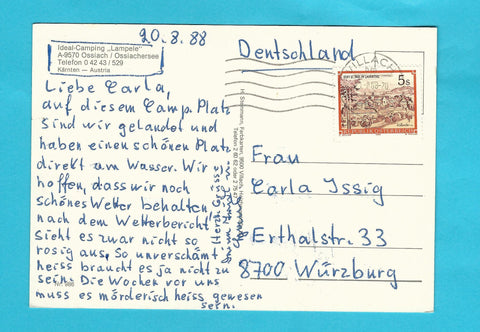 20.8.88
Ideal-Camping „Lampele"
A-9570 Ossiach / Ossiachersee
Telefon 0 42 43 / 529
Kärnten — Austria
Liebe Carla,
auf diesem Camp. Platz
sind wir gelandet und
haben einen schönen Platz
direkt am Wasser. Wir
hoffen, dass wir noch
schönes Wetter behalten,
nach dem Wetterbericht
sieht es zwar nicht so
rosig aus. So unverschämt
heiss braucht es ja nicht zu
sein. Die Wochen vor uns
muss es mörderisch heiss gewesen
sein.
Herzl. Grüsse
Deutschland
VILLACH
5s
REPUBLIK ÖSTERREICH
Frau
Carla Issig
Erthalstr. 33
8700 Würzburg